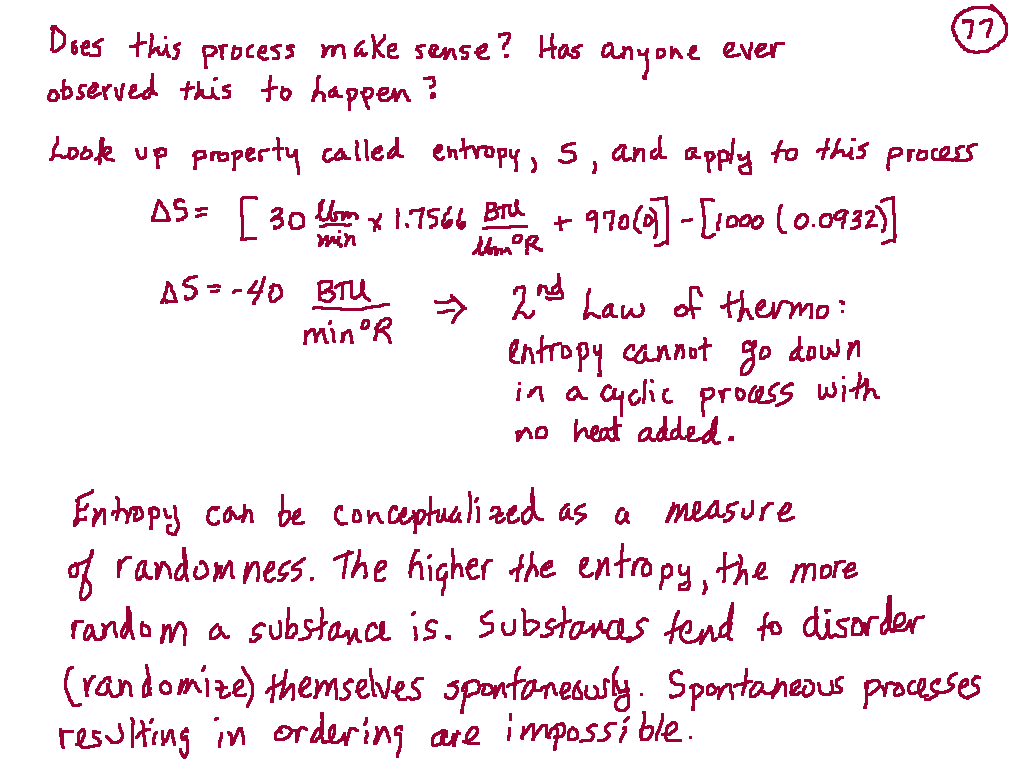 77
Does this process make sense? Has anyone ever
observed this to happen?
Look up property called entropy, S, and apply to this process
ΔS = [30 lbm/min x 1.7566 BTU/lbm°R + 970(0)] - [1000 (0.0932)]
ΔS = -40 BTU/min°R ⇒ 2nd Law of thermo:
entropy cannot go down
in a cyclic process with
no heat added.
Entropy can be conceptualized as a measure
of randomness. The higher the entropy, the more
random a substance is. Substances tend to disorder
(randomize) themselves spontaneously. Spontaneous processes
resulting in ordering are impossible.